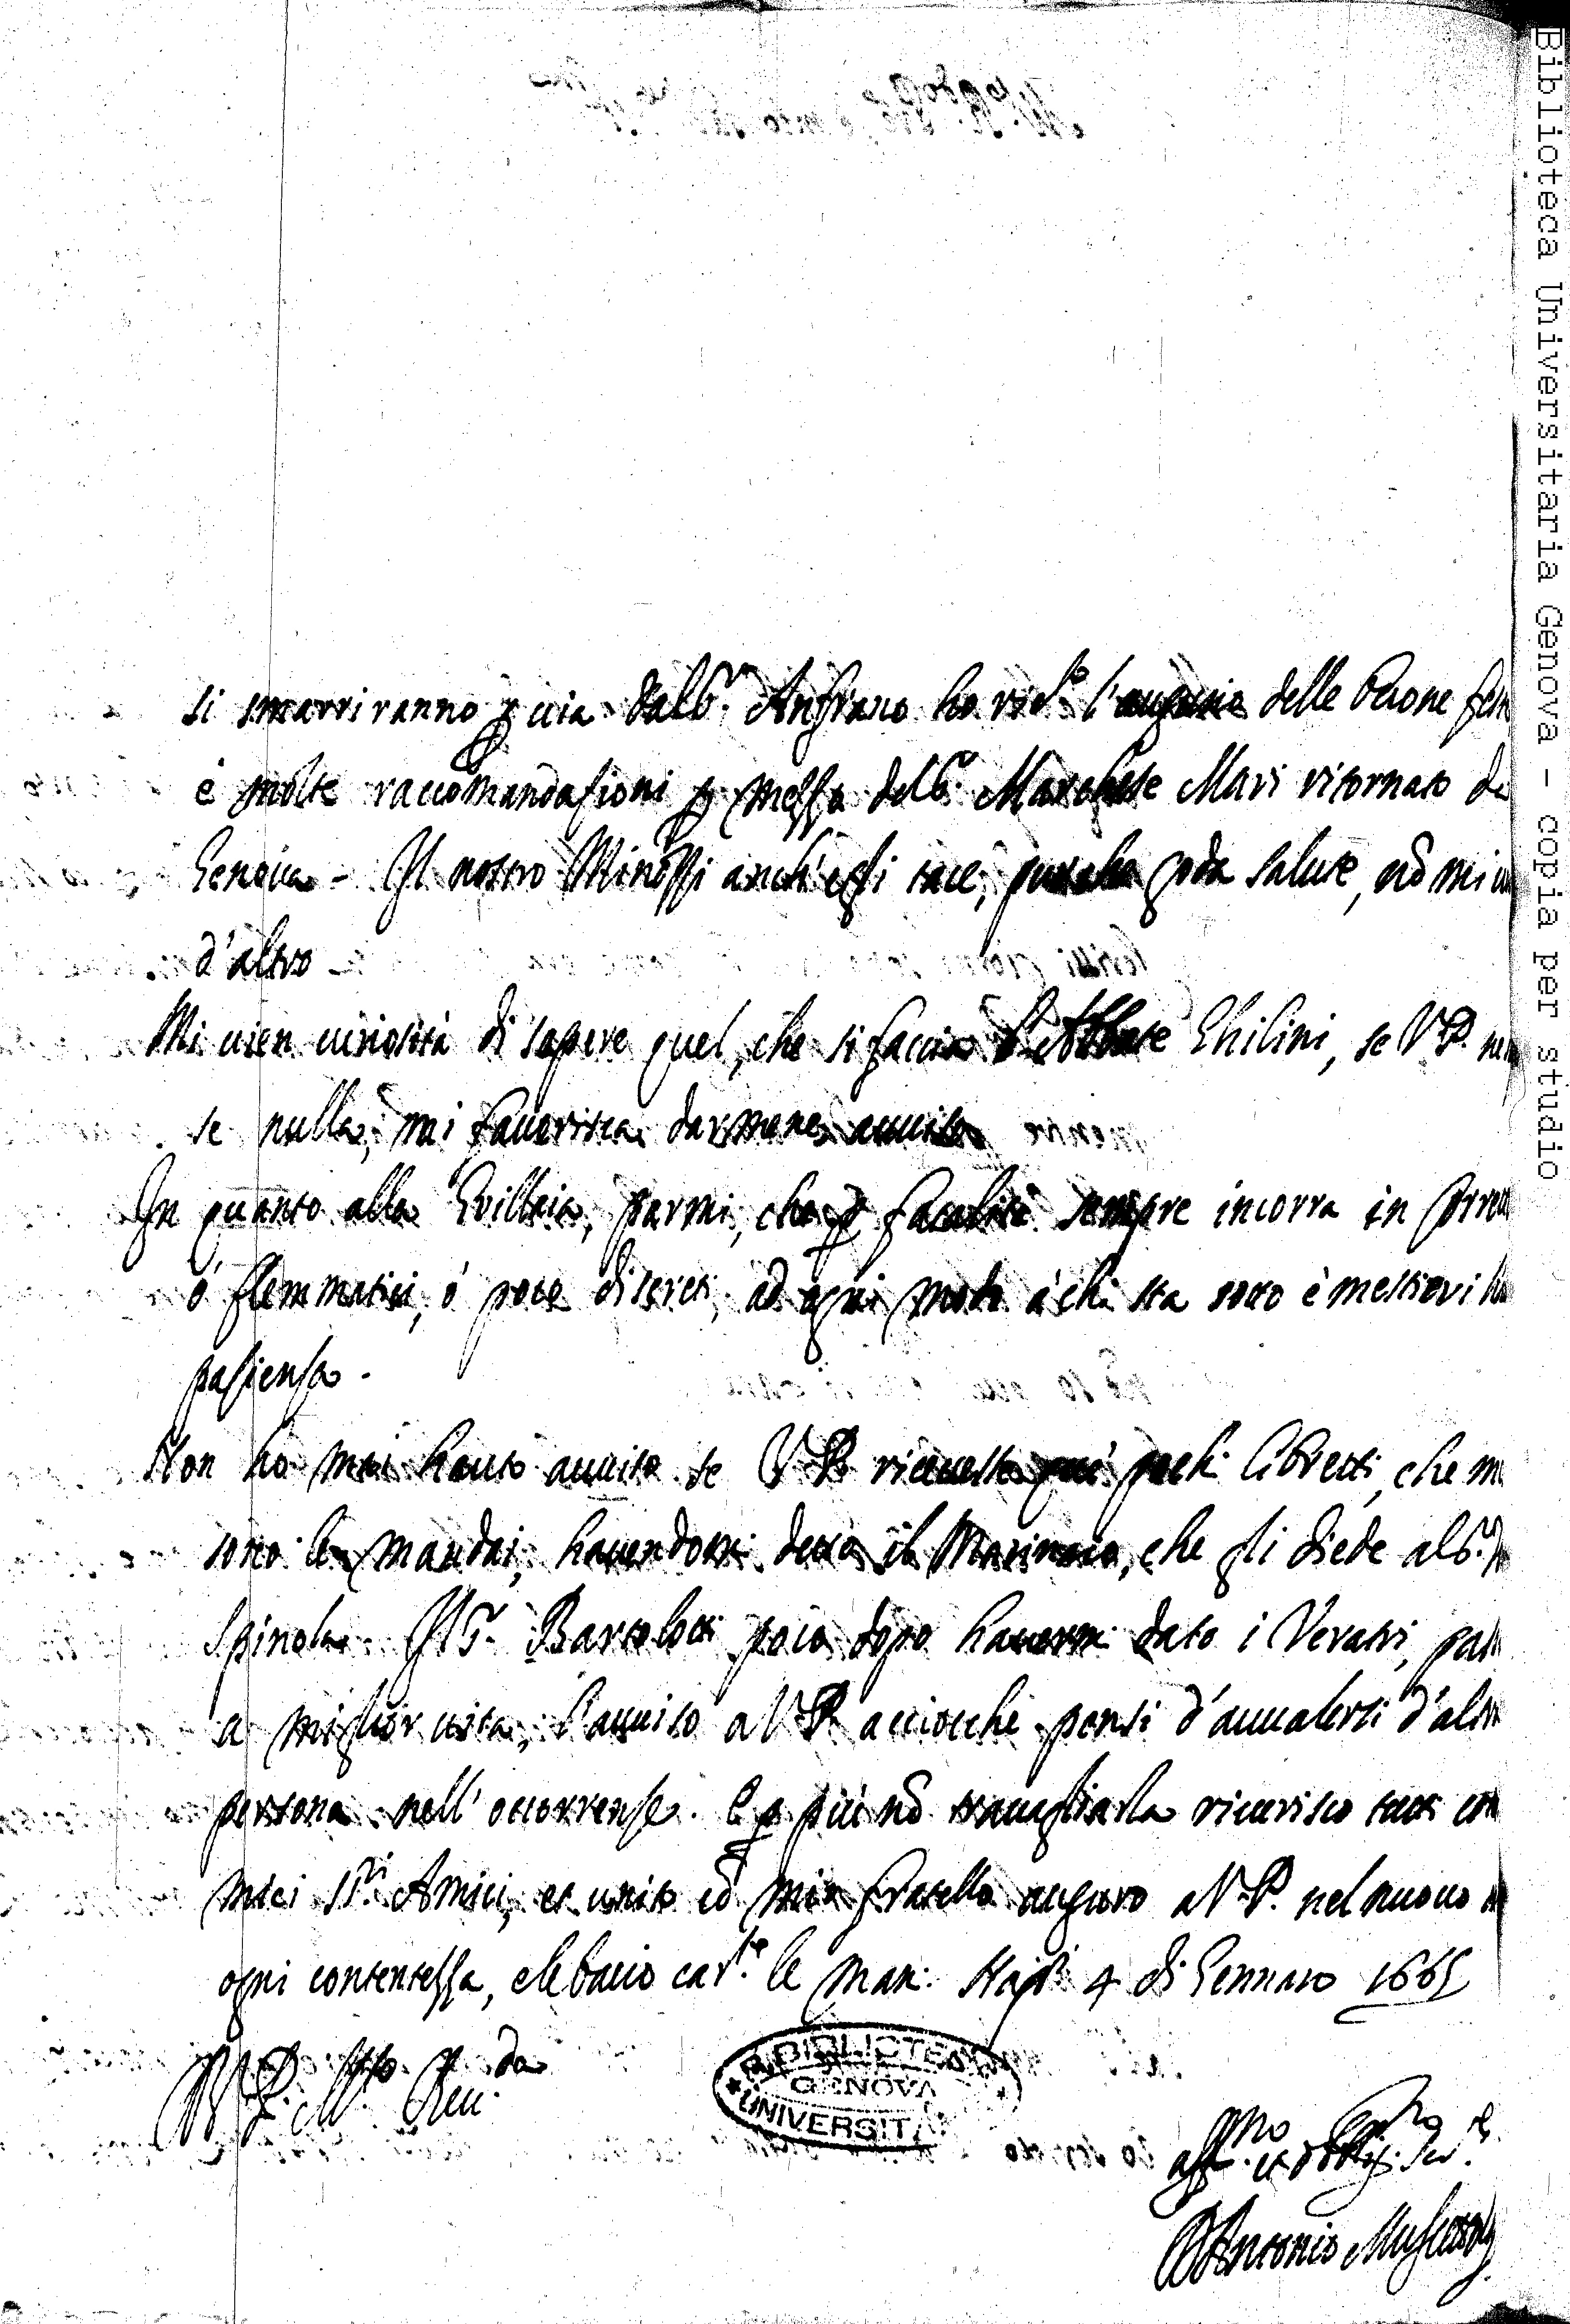 si smarriranno p uia. Dal Sr. Anfrano ho ric.to l'augurio delle buone fes
è molte raccomandationi p mezzo del Sr. Marchese Mari ritornato da
Genoua - Il nostro Minozzi anch'egli tace; purche goda salute, nõ mi
d'altro -
Mi uien curiosità di sapere quel, che si faccia l'Abbate Ghilini, se V.P. ne
se nulla, mi fauorisca darmene auuiso
In quanto alla parmi, che p facalità sempre incorra in
ò flemmatici, ò poco discreti; ad ogni modo à chi sta sotto è mestieri
pazienza.
Non ho mai hauto auuiso se V.P. riceuesse quei pochi libretti, che
sono le mandai, hauendomi detto il Marinaio, che gli diede al Sr.
Spinola. Il Sr. Bartolotti poco dopo hauermi dato i Veratri, pas
a miglior uita, l'auuiso a V.P. acciocche pensi d'auualersi d'altra
persona nell'occorrenze. E p più nõ trauagliarla riuerisco tutti cot
miei SS.ri Amici, et unito cõ mio fratello auguro a V.P. nel nuouo
ogni contentezza, e le bacio car.te le man: Nap.i 4 di Gennaro 1665
D V.P. M.to Reu.da
aff.mo et obblig.mo Ser.re
D Antonio Muscettola
R. BIBLIOTECA
GENOVA
UNIVERSITA
Biblioteca Universitaria Genova - copia per studio